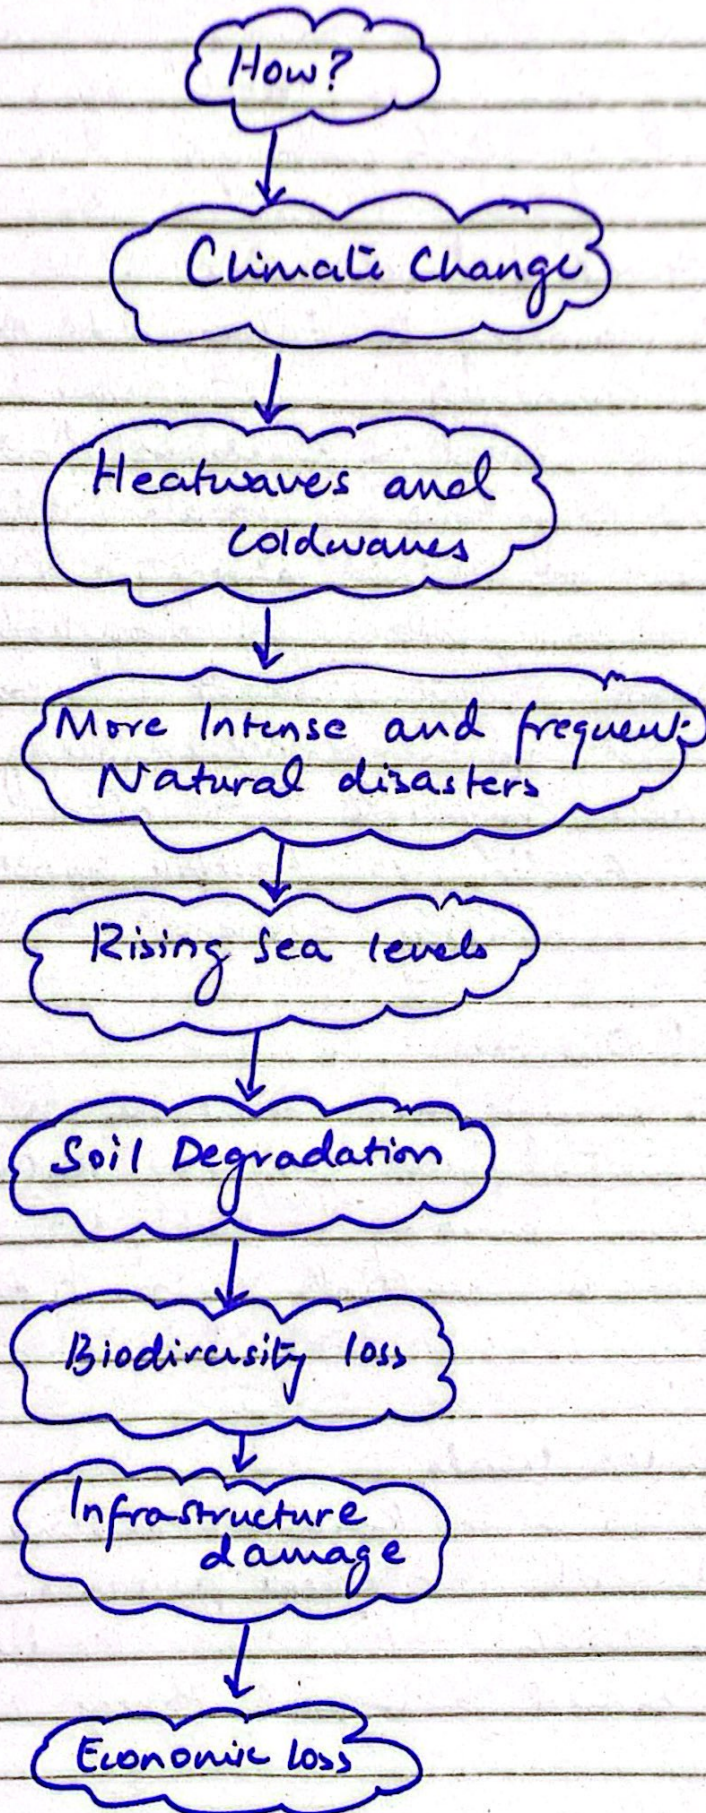 How?
Climate Change
Heatwaves and
coldwaves
More Intense and frequent
Natural disasters
Rising Sea levels
Soil Degradation
Biodiversity loss
Infrastructure
damage
Economic loss